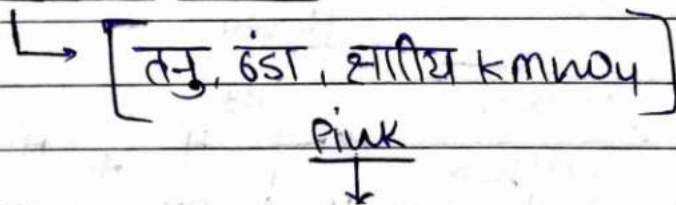 [तनु, ठंडा, क्षारीय KMnO4]
Pink